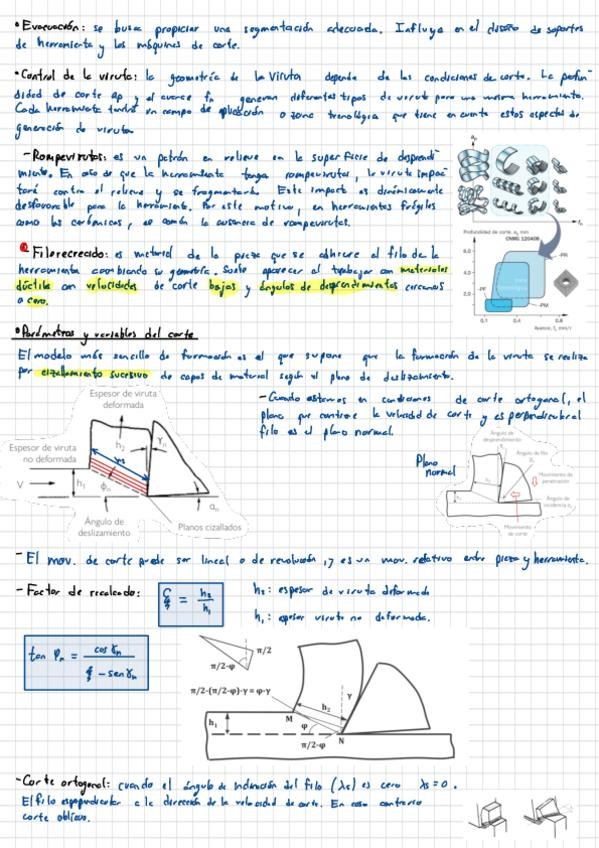 • Evacuación: se busca propiciar una segmentación adecuada. Influye en el diseño de soportes
de herramienta y las máquinas de corte.
• Control de la viruta: la geometría de la viruta depende de las condiciones de corte. La profun
didad de corte ap y el avance fn generan diferentes tipos de viruta para una misma herramienta.
Cada herramienta tendrá un campo de aplicación o zona tecnológica que tiene en cuenta estos aspectos de
generación de viruta.
- Rompevirutas: es un patrón en relieve en la superficie de desprendi-
miento. En caso de que la herramienta tenga rompevirutas, la viruta impac-
tará contra el relieve y se fragmentará. Este impacto es dinámicamente
desfavorable para la herramienta. Por este motivo, en herramientas frágiles
como las cerámicas, es común la ausencia de rompevirutas.
ap
fn
Profundidad de corte, ap, mm
CNMG 120408
6.0
4.0
2.0
-PR
-PF
-PM
0.1
0.4
0.8
Avance, fn mm/r
Filo recrecido: es material de la pieza que se adhiere al filo de la
herramienta cambiando su geometría. Suele aparecer al trabajar con materiales
dúctiles con velocidades de corte bajas y ángulos de desprendimientos cercanos
a cero.
• Parámetros y variables del corte
El modelo más sencillo de formación es el que supone que la formación de la viruta se realiza
por cizallamiento sucesivo de capas de material según el plano de deslizamiento.
Espesor de viruta
deformada
Espesor de viruta
no deformada
V
h1
h2
γn
ϕn
αn
Ángulo de
deslizamiento
Planos cizallados
- Cuando estamos en condiciones de corte ortogonal, el
plano que contiene la velocidad de corte y es perpendicular al
filo es el plano normal.
Plano
normal
Ángulo de
desprendimiento
Ángulo de filo
Movimiento de
penetración
Ángulo de
incidencia
Movimiento
de corte
- El mov. de corte puede ser lineal o de revolución, y es un mov. relativo entre pieza y herramienta.
- Factor de recalcado: ξ = h2 / h1
h2: espesor de viruta deformada
h1: espesor viruta no deformada.
tan φn = cos γn / ξ - sen γn
π/2
π/2-φ
π/2-(π/2-φ)-γ = φ-γ
γ
h2
M
h1
φ
N
π/2-φ
- Corte ortogonal: cuando el ángulo de inclinación del filo (λs) es cero λs = 0.
El filo es perpendicular a la dirección de la velocidad de corte. En caso contrario
corte oblicuo.